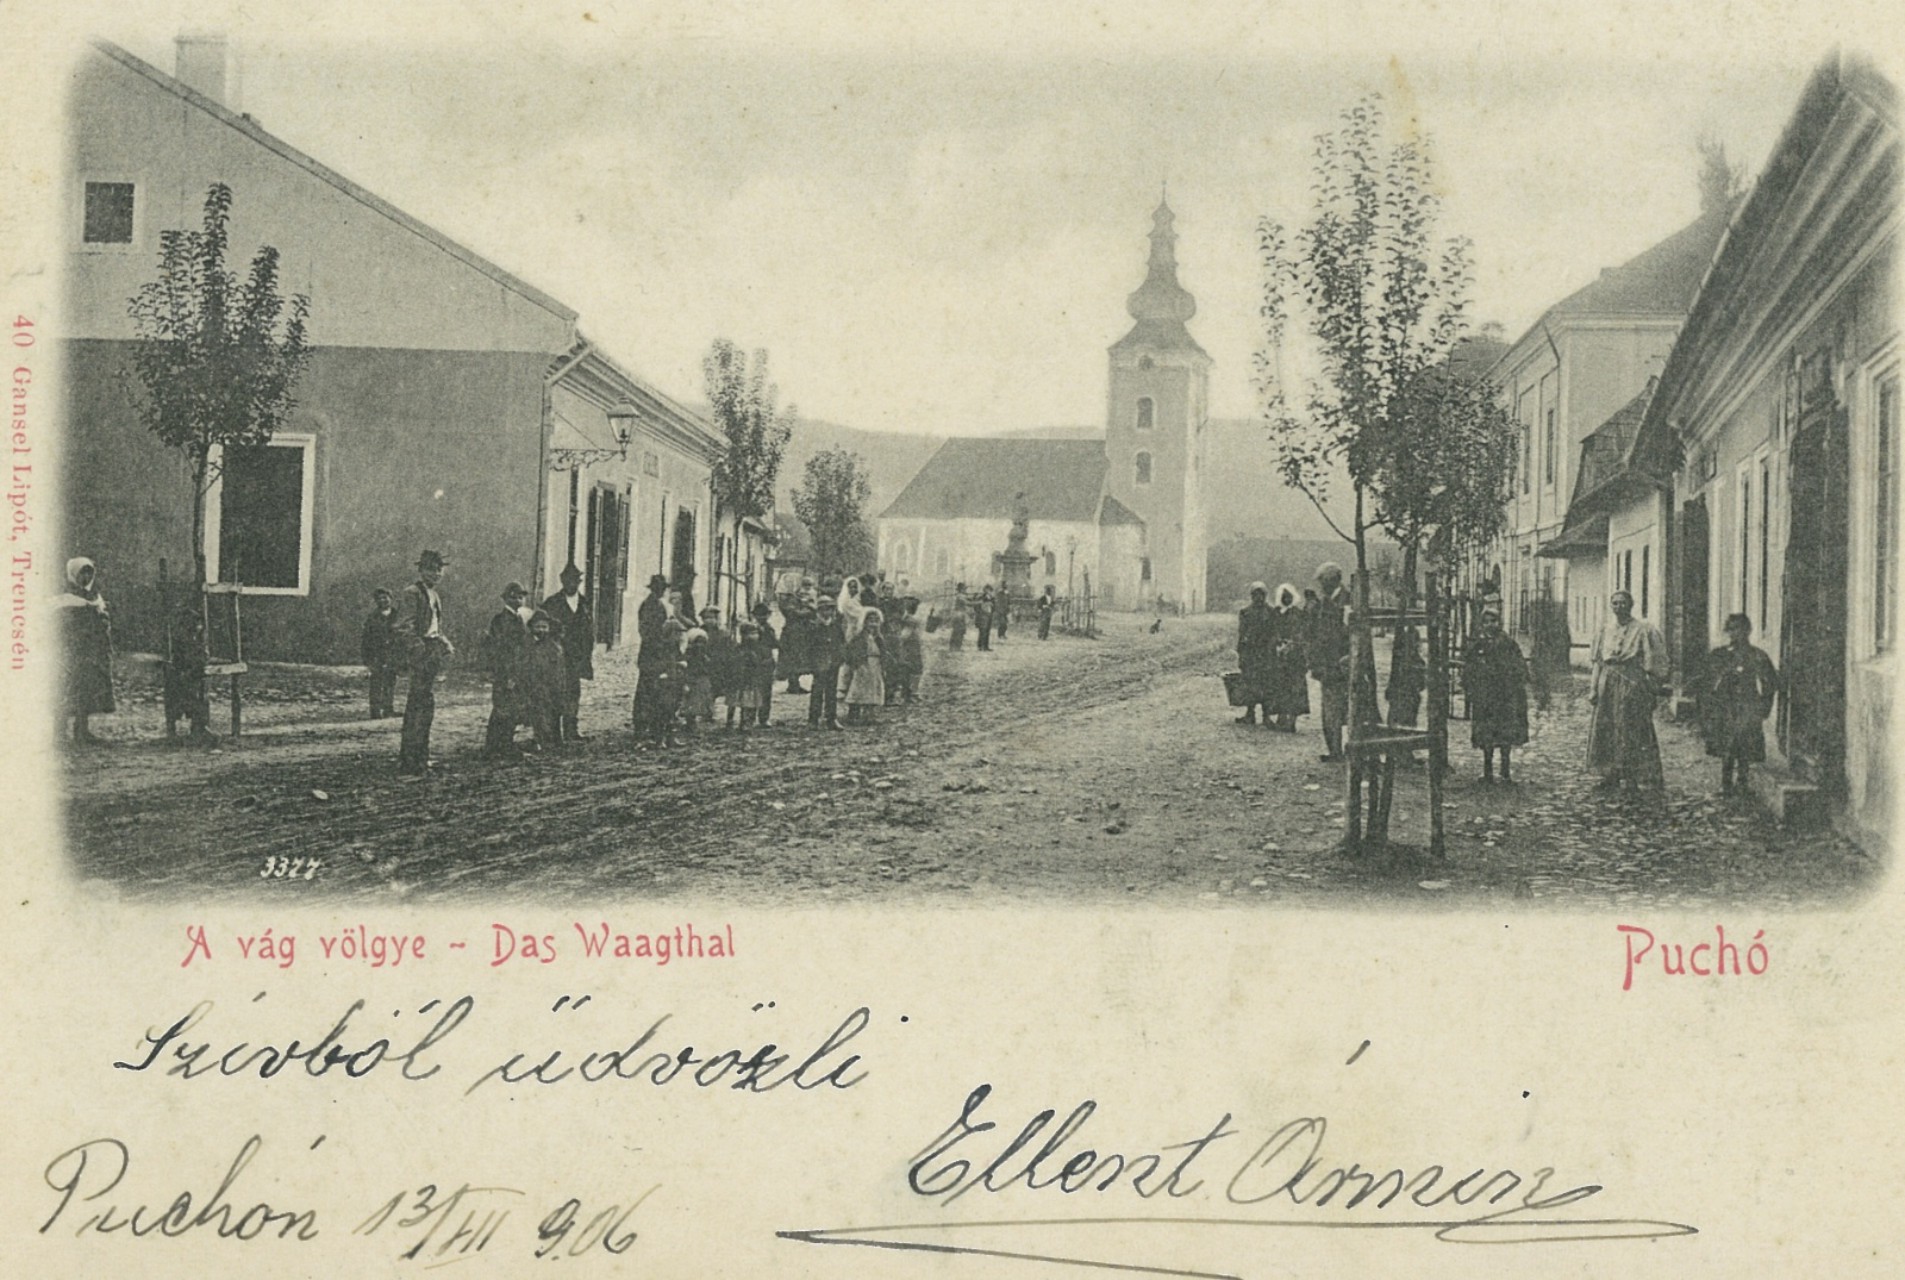 40 Gansel Lipót, Trencsén
3377
A vág völgye - Das Waagthal
Puchó
Szívből üdvözli
Ellent Ármin
Puchón 13/VII 906